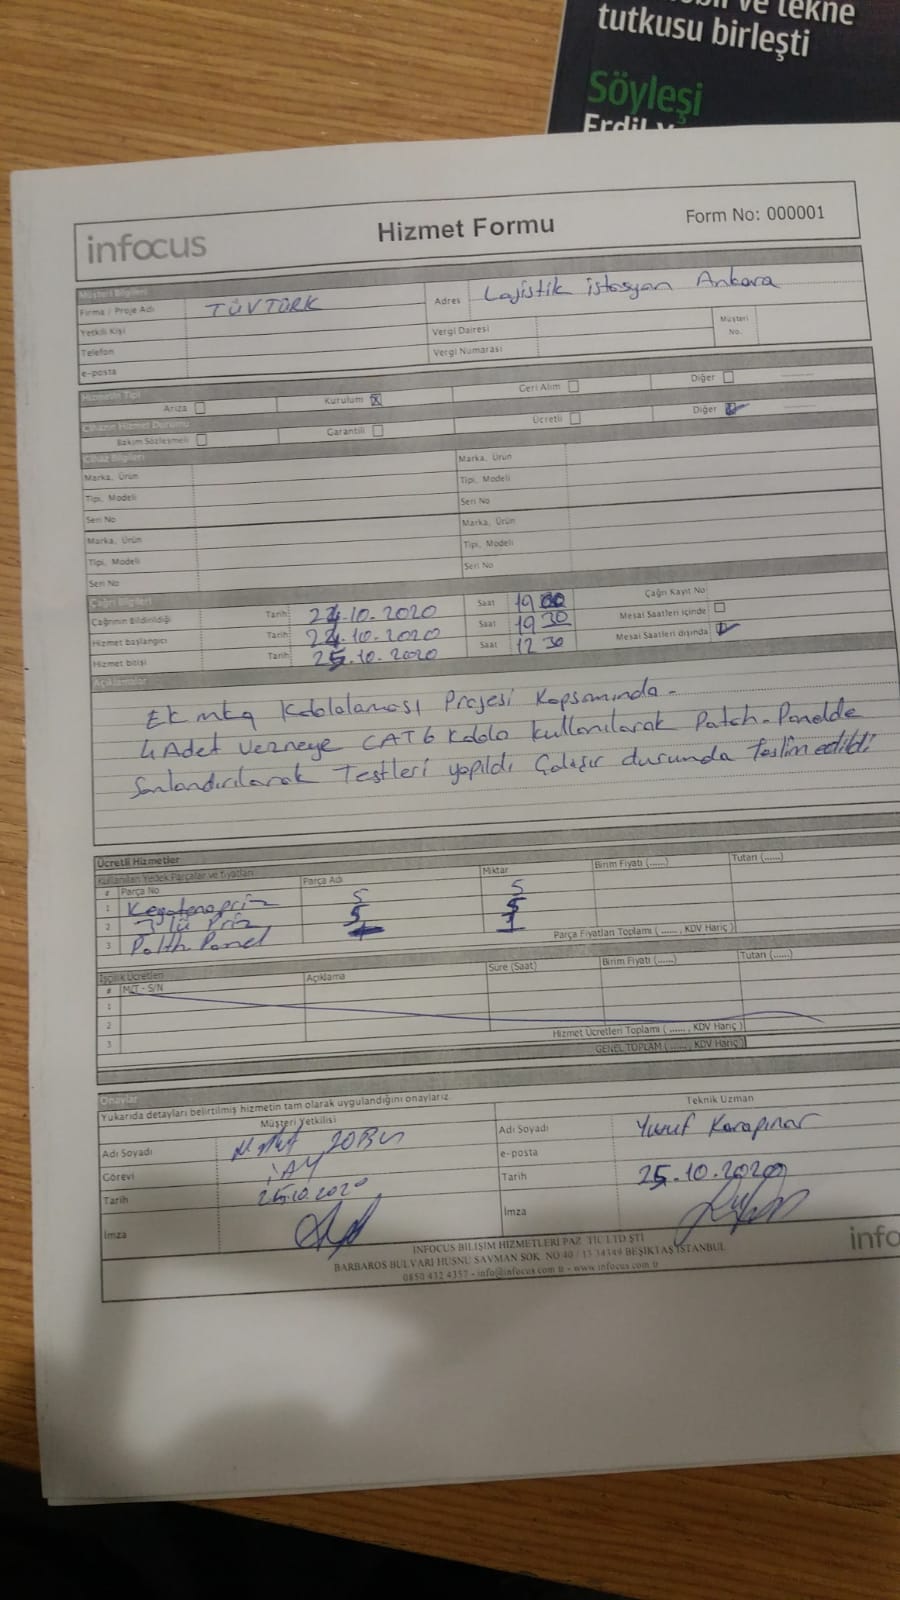 tutkusu birleşti
Söyleşi
infocus
Hizmet Formu
Form No: 000001
Müşteri Bilgileri
Firma / Proje Adı TÜVTÜRK
Adres Lojistik istasyon Ankara
Yetkili Kişi
Vergi Dairesi
Müşteri No.
Telefon
Vergi Numarası
e-posta
Hizmetin Tipi
Arıza Kurulum Geri Alım Diğer
Cihazın Hizmet Durumu
Bakım Sözleşmeli Garantili Ücretli Diğer
Cihaz Bilgileri
Marka, Ürün Marka, Ürün
Tipi, Modeli Tipi, Modeli
Seri No Seri No
Marka, Ürün Marka, Ürün
Tipi, Modeli Tipi, Modeli
Seri No Seri No
Çağrı Bilgileri
Çağrının Bildirildiği Tarih: 24.10.2020 Saat 19 00 Çağrı Kayıt No
Hizmet başlangıcı Tarih: 24.10.2020 Saat 19 30 Mesai Saatleri içinde
Hizmet bitişi Tarih: 25.10.2020 Saat 12 30 Mesai Saatleri dışında
Açıklamalar
Ek Kablolaması Projesi Kapsamında.
4 Adet Vezneye CAT6 Kablo kullanılarak Patch-Panelde
Sonlandırılarak Testleri yapıldı Çalışır durumda Teslim edildi
Ücretli Hizmetler
Kullanılan Yedek Parçalar ve fiyatları
# Parça No Parça Adı Miktar Birim Fiyatı (......) Tutarı (......)
1 5 5
2 3 lü Priz 5 5
3 Patth Panel 1
Parça Fiyatları Toplamı ( ...... , KDV Hariç )
İşçilik Ücretleri
# M/T - S/N Açıklama Süre (Saat) Birim Fiyatı (......) Tutarı (......)
1
2
3
Hizmet Ücretleri Toplamı ( ...... , KDV Hariç )
GENEL TOPLAM ( ...... , KDV Hariç )
Onaylar
Yukarıda detayları belirtilmiş hizmetin tam olarak uygulandığını onaylarız.
Müşteri Yetkilisi Teknik Uzman
Adı Soyadı
Adı Soyadı Yusuf Karapınar
Görevi
e-posta
Tarih 25.10.2020
Tarih 25.10.2020
İmza
İmza
INFOCUS BİLİŞİM HİZMETLERİ PAZ. TİC LTD ŞTİ
BARBAROS BULVARI HÜSNÜ SAVMAN SOK. NO 40 / 13 34349 BEŞİKTAŞ İSTANBUL
0850 432 4357 - info@infocus.com.tr - www.infocus.com.tr